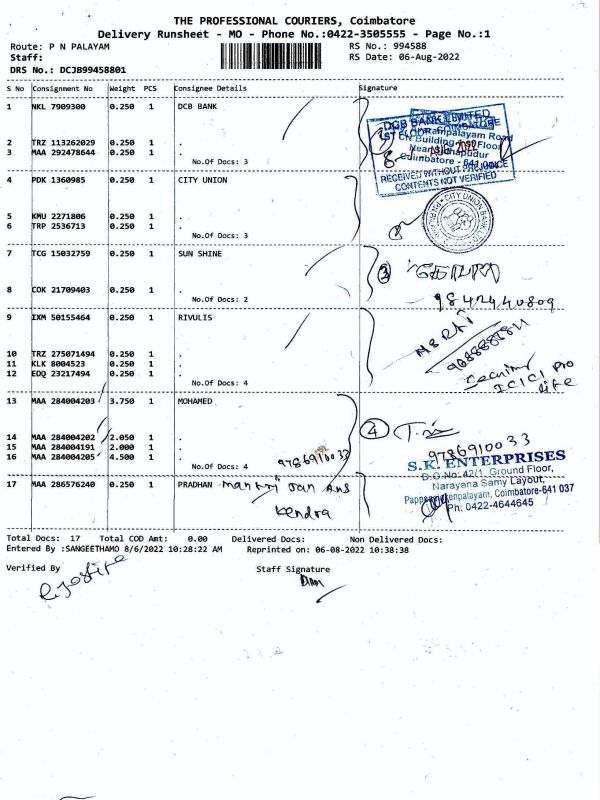 THE PROFESSIONAL COURIERS, Coimbatore
Delivery Runsheet - MO - Phone No.:0422-3505555 - Page No.:1
Route: P N PALAYAM RS No.: 994588
Staff: RS Date: 06-Aug-2022
DRS No.: DCJB99458801
S No Consignment No Weight PCS Consignee Details Signature
1 NKL 7909300 0.250 1 DCB BANK
DCB BANK LIMITED
2 TRZ 113262029 0.250 1 .
3 MAA 292478644 0.250 1 .
No.Of Docs: 3
Coimbatore - 641
RECEIVED WITHOUT
CONTENTS NOT VERIFIED
4 PDK 1360985 0.250 1 CITY UNION
CITY UNION BANK
5 KMU 2271806 0.250 1 .
6 TRP 2536713 0.250 1 .
No.Of Docs: 3
7 TCG 15032759 0.250 1 SUN SHINE
3
8 COK 21709403 0.250 1 .
No.Of Docs: 2
9842440809
9 IXM 50155464 0.250 1 RIVULIS
10 TRZ 275071494 0.250 1 .
11 KLK 8004523 0.250 1 .
12 EDQ 23217494 0.250 1 .
No.Of Docs: 4
ICICI Pro
life
13 MAA 284004203 3.750 1 MOHAMED
4
14 MAA 284004202 2.050 1 .
15 MAA 284004191 2.000 1 .
16 MAA 284004205 4.500 1 .
No.Of Docs: 4 9786910033
9786910033
S.K. ENTERPRISES
D.O.No: 42/1, Ground Floor,
Narayana Samy Layout,
Coimbatore-641 037
Ph: 0422-4644645
17 MAA 286576240 0.250 1 PRADHAN mantri Jan
kendra
Total Docs: 17 Total COD Amt: 0.00 Delivered Docs: Non Delivered Docs:
Entered By :SANGEETHAMO 8/6/2022 10:28:22 AM Reprinted on: 06-08-2022 10:38:38
Verified By Staff Signature